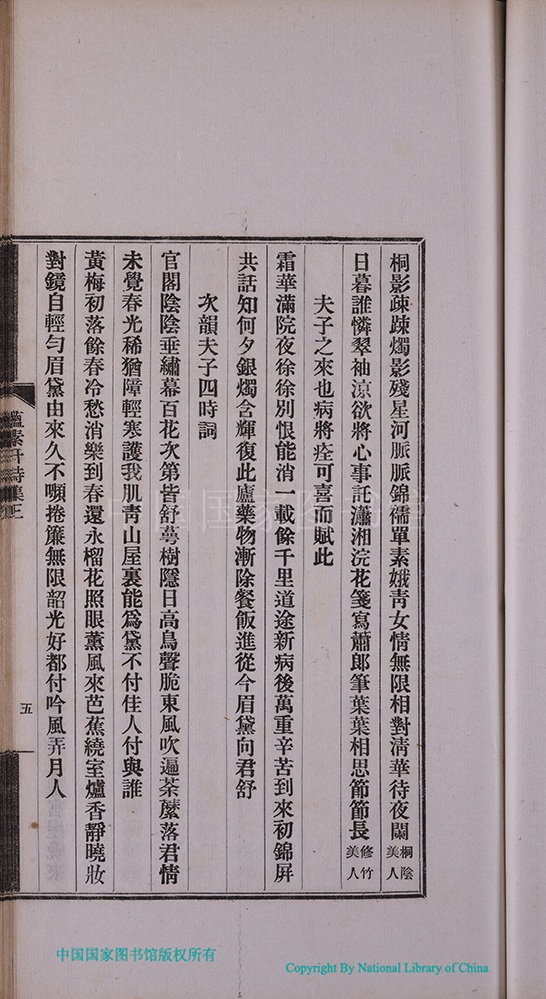 桐影疎疎燭影殘星河脈脈錦襦單素娥靑女情無限相對淸華待夜闌桐陰美人
日暮誰憐翠袖涼欲將心事託瀟湘浣花箋寫蕭郞筆葉葉相思節節長修竹美人
夫子之來也病將痊可喜而賦此
霜華滿院夜徐徐別恨能消一載餘千里道途新病後萬重辛苦到來初錦屛
共話知何夕銀燭含輝復此廬藥物漸除餐飯進從今眉黛向君舒
次韻夫子四時詞
官閣陰陰垂繡幕百花次第皆舒萼樹隱日高鳥聲脆東風吹遍荼蘼落君情
未覺春光稀猶障輕寒護我肌靑山屋裏能爲黛不付佳人付與誰
黃梅初落餘春冷愁消樂到春還永榴花照眼薰風來芭蕉繞室爐香靜曉妝
對鏡自輕勻眉黛由來久不嚬捲簾無限韶光好都付吟風弄月人
蘊素軒詩集三
五
中国国家图书馆
中国国家图书馆版权所有
Copyright By National Library of China